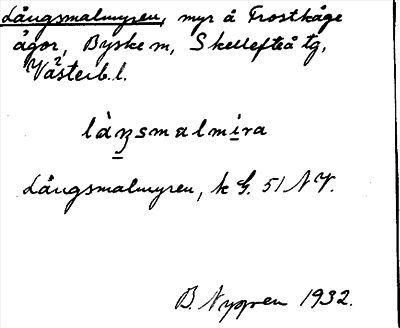 Långsmalmyren, myr å Frostkåge
ägor, Byske sn, Skellefteå tg,
Västerb. l.
làŋsmalmira
Långsmalmyren, k G. 51 NV.
B. Nygren 1932.